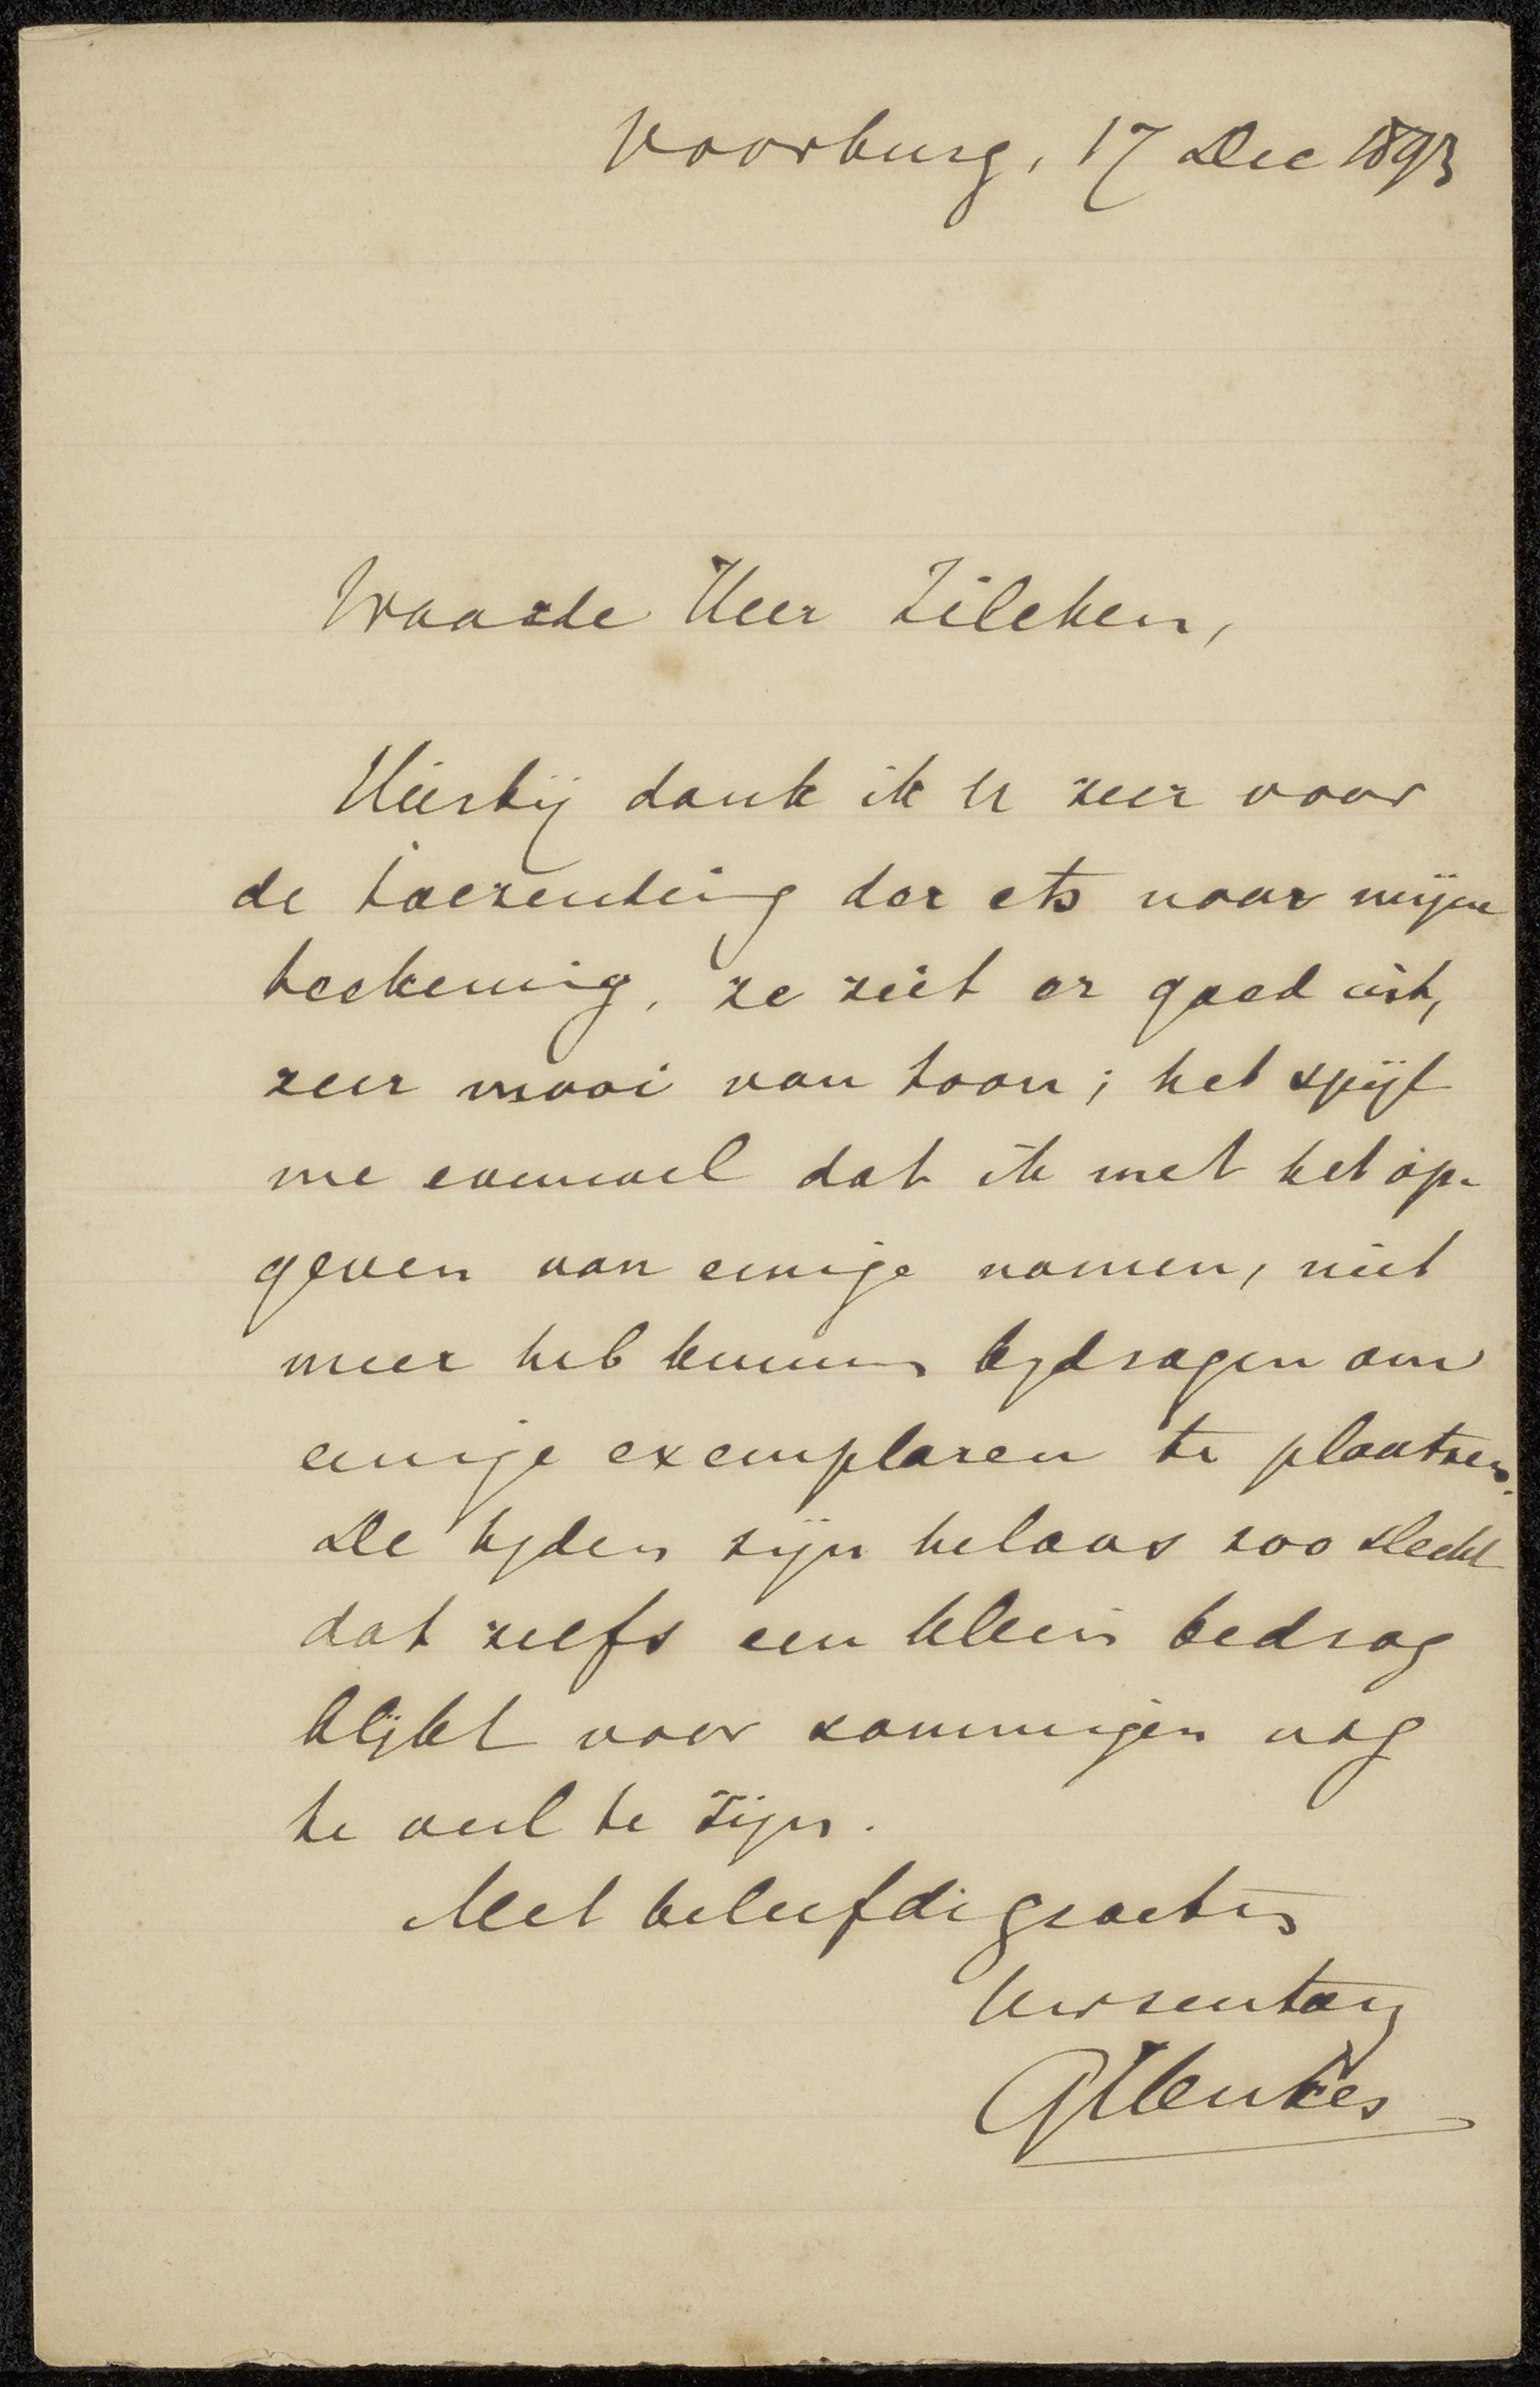 Voorburg, 17 Dec 1893
Waarde Heer Zilcken,
Hierbij dank ik U zeer voor
de toezending der ets naar mijne
teekening, ze ziet er goed uit,
zeer mooi van toon; het spijt
me evenwel dat ik met het op-
geven van eenige namen, niet
meer heb kunnen bijdragen om
eenige exemplaren te plaatsen.
De tijden zijn helaas zoo slecht
dat zelfs een klein bedrag
blijkt voor sommigen nog
te veel te zijn.
Met beleefde groeten
GHenkes